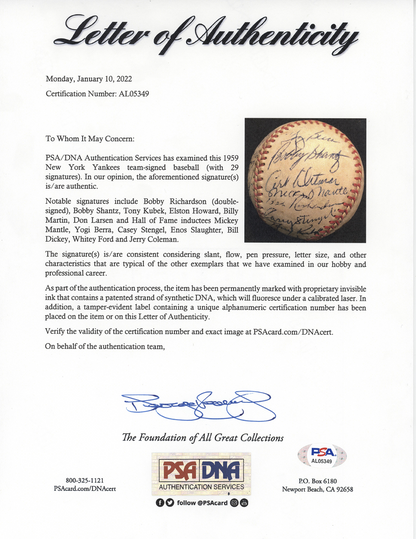 Letter of Authenticity
Monday, January 10, 2022
Certification Number: AL05349
To Whom It May Concern:
PSA/DNA Authentication Services has examined this 1959
New York Yankees team-signed baseball (with 29
signatures). In our opinion, the aforementioned signature(s)
is/are authentic.
Notable signatures include Bobby Richardson (double-
signed), Bobby Shantz, Tony Kubek, Elston Howard, Billy
Martin, Don Larsen and Hall of Fame inductees Mickey
Mantle, Yogi Berra, Casey Stengel, Enos Slaughter, Bill
Dickey, Whitey Ford and Jerry Coleman.
Bobby Shantz
Art Ditmar
Mickey Mantle
Casey Stengel
The signature(s) is/are consistent considering slant, flow, pen pressure, letter size, and other
characteristics that are typical of the other exemplars that we have examined in our hobby and
professional career.
As part of the authentication process, the item has been permanently marked with proprietary invisible
ink that contains a patented strand of synthetic DNA, which will fluoresce under a calibrated laser. In
addition, a tamper-evident label containing a unique alphanumeric certification number has been
placed on the item or on this Letter of Authenticity.
Verify the validity of the certification number and exact image at PSAcard.com/DNAcert.
On behalf of the authentication team,
The Foundation of All Great Collections
800-325-1121
PSAcard.com/DNAcert
PSA DNA
AUTHENTICATION SERVICES
follow @PSAcard
PSA
AL05349
P.O. Box 6180
Newport Beach, CA 92658